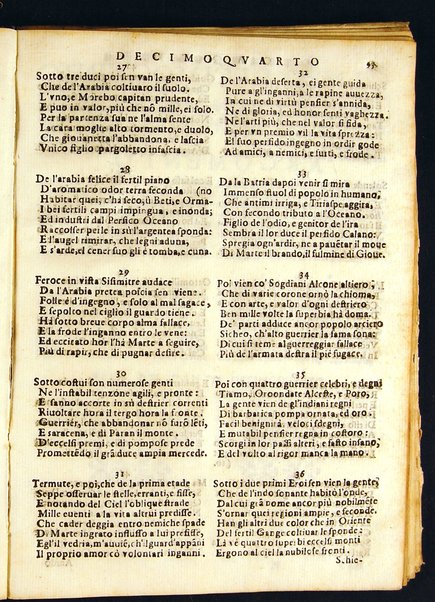 DECIMOQVARTO
27
Sotto tre duci poi sen van le genti,
Che de l'Arabia coltiuaro il suolo.
L'vno, e Morebo capitan prudente,
E può in valor, più che nel nome solo.
Per la partenza sua ne l'alma sente
La cara moglie alto tormento, e duolo,
Che giouanetta l'abbandona, e lascia
Vnico figlio pargoletto infascia.
28
De l'arabia felice il fertil piano
D'aromatico odor terra feconda (no
Habitar quei; c'hà seco, ù Beti, e Orma-
I bei fertili campi impingua, e inonda;
Ed industri dal Persico Oceano
Raccolser perle in sù l'argentea sponda:
E l'augel rimirar, che legni aduna,
E s'arde, el cener suo gli è tomba, e cuna.
29
Feroce in vista Sisimitre audace
Da l'Arabia pretra poscia sen viene.
Folle è d'ingegno, e solo al mal sagace,
E sepolto nel ciglio il guardo tiene.
Hà sotto breue corpo alma fallace,
E la frode d'inganni entro le vene:
Ed eccitato hor l'hà Marte a seguire,
Più di rapir, che di pugnar desire.
30
Sotto costui son numerose genti
Ne l'instabil tenzone agili, e pronte:
E sanno accorte in sù destrier correnti
Riuoltare hora il tergo hora la fronte.
Guerrier, che abbandonar nõ furõ lẽti,
E saracena, e di Paran il monte.
D'eccelsi pregi ed'honorate prede
Promette do il grã duce ampia mercede.
31
Termute, e poi, che de la prima etade
Seppe osseruar le stelle, erranti, e fisse,
E notando del Ciel l'oblique strade
Mille euenti a la vita altrui predisse.
Che cader deggia entro nemiche spade
Di Marte ingrato influsso a lui prefisse,
Egl'il vedria, m'auuisẽ, ch'il guard'appãni
Il proprio amor cò volontari inganni.
32
De l'Arabia deserta, ei gente guida
Pure a gl'inganni, a le rapine auuezza,
In cui ne di virtù pensier s'annida,
Ne di gloria, ed honor senti vaghezza.
Nel'arti più, che nel valor si fida,
E per vn premio vil la vita sprezza:
El suo perfido ingegno in ordir gode
Ad amici, a nemici, e furti, e frode.
33
Da la Batria dapoi venir si mira
Immenso stuol di popolo in humano,
Che antimi irriga, e Tiriaspe aggira,
Con secondo tributo a l'Oceano.
Figlio de l'odio, e genitor de l'ira
Sembra il lor duce il perfido Calano:
Spregia ogn'ardir, ne a pauẽtar il moue
Di Marte il brando, il fulmine di Gioue.
34
Poi vien co' Sogdiani Alcone altiero,
Che di varie corone ornò la chioma,
E con arte, e valor d'ogni destriero
Ben mille volte la superbia hà doma.
De' parti adduce ancor popolo arciero
Sicheo, ch'alto guerrier la fama sona:
Di cui si teme al guerreggiar fallace
Più de l'armata destra il piè fugace.
35
Poi con quattro guerrier celebri, e degni
Tiamo, Oroondate Alceste, e Poro,
La gente vien de gl'indiani regni
Di barbarica pompa ornata, ed oro.
Facil benignità, veloci sdegni,
E mutabil pensier regna in costoro:
Scorgi in lor pazzi alteri, e fasto insano,
E del volto al rigor manca la mano.
36
Sotto i due primi Eroi sen vien la gente,
Che de l'indo sonante habitò l'onde,
Dal cui grã nome ancor più nobilmente
S'ornar quei regioni ampie, e seconde.
Han gli altri due color che in Oriente
Del fertil Gange coltiuar le sponde:
Là ve quattro superbi eccelsi monti
Ergono al ciel la nubilose fronti.
S.hie-